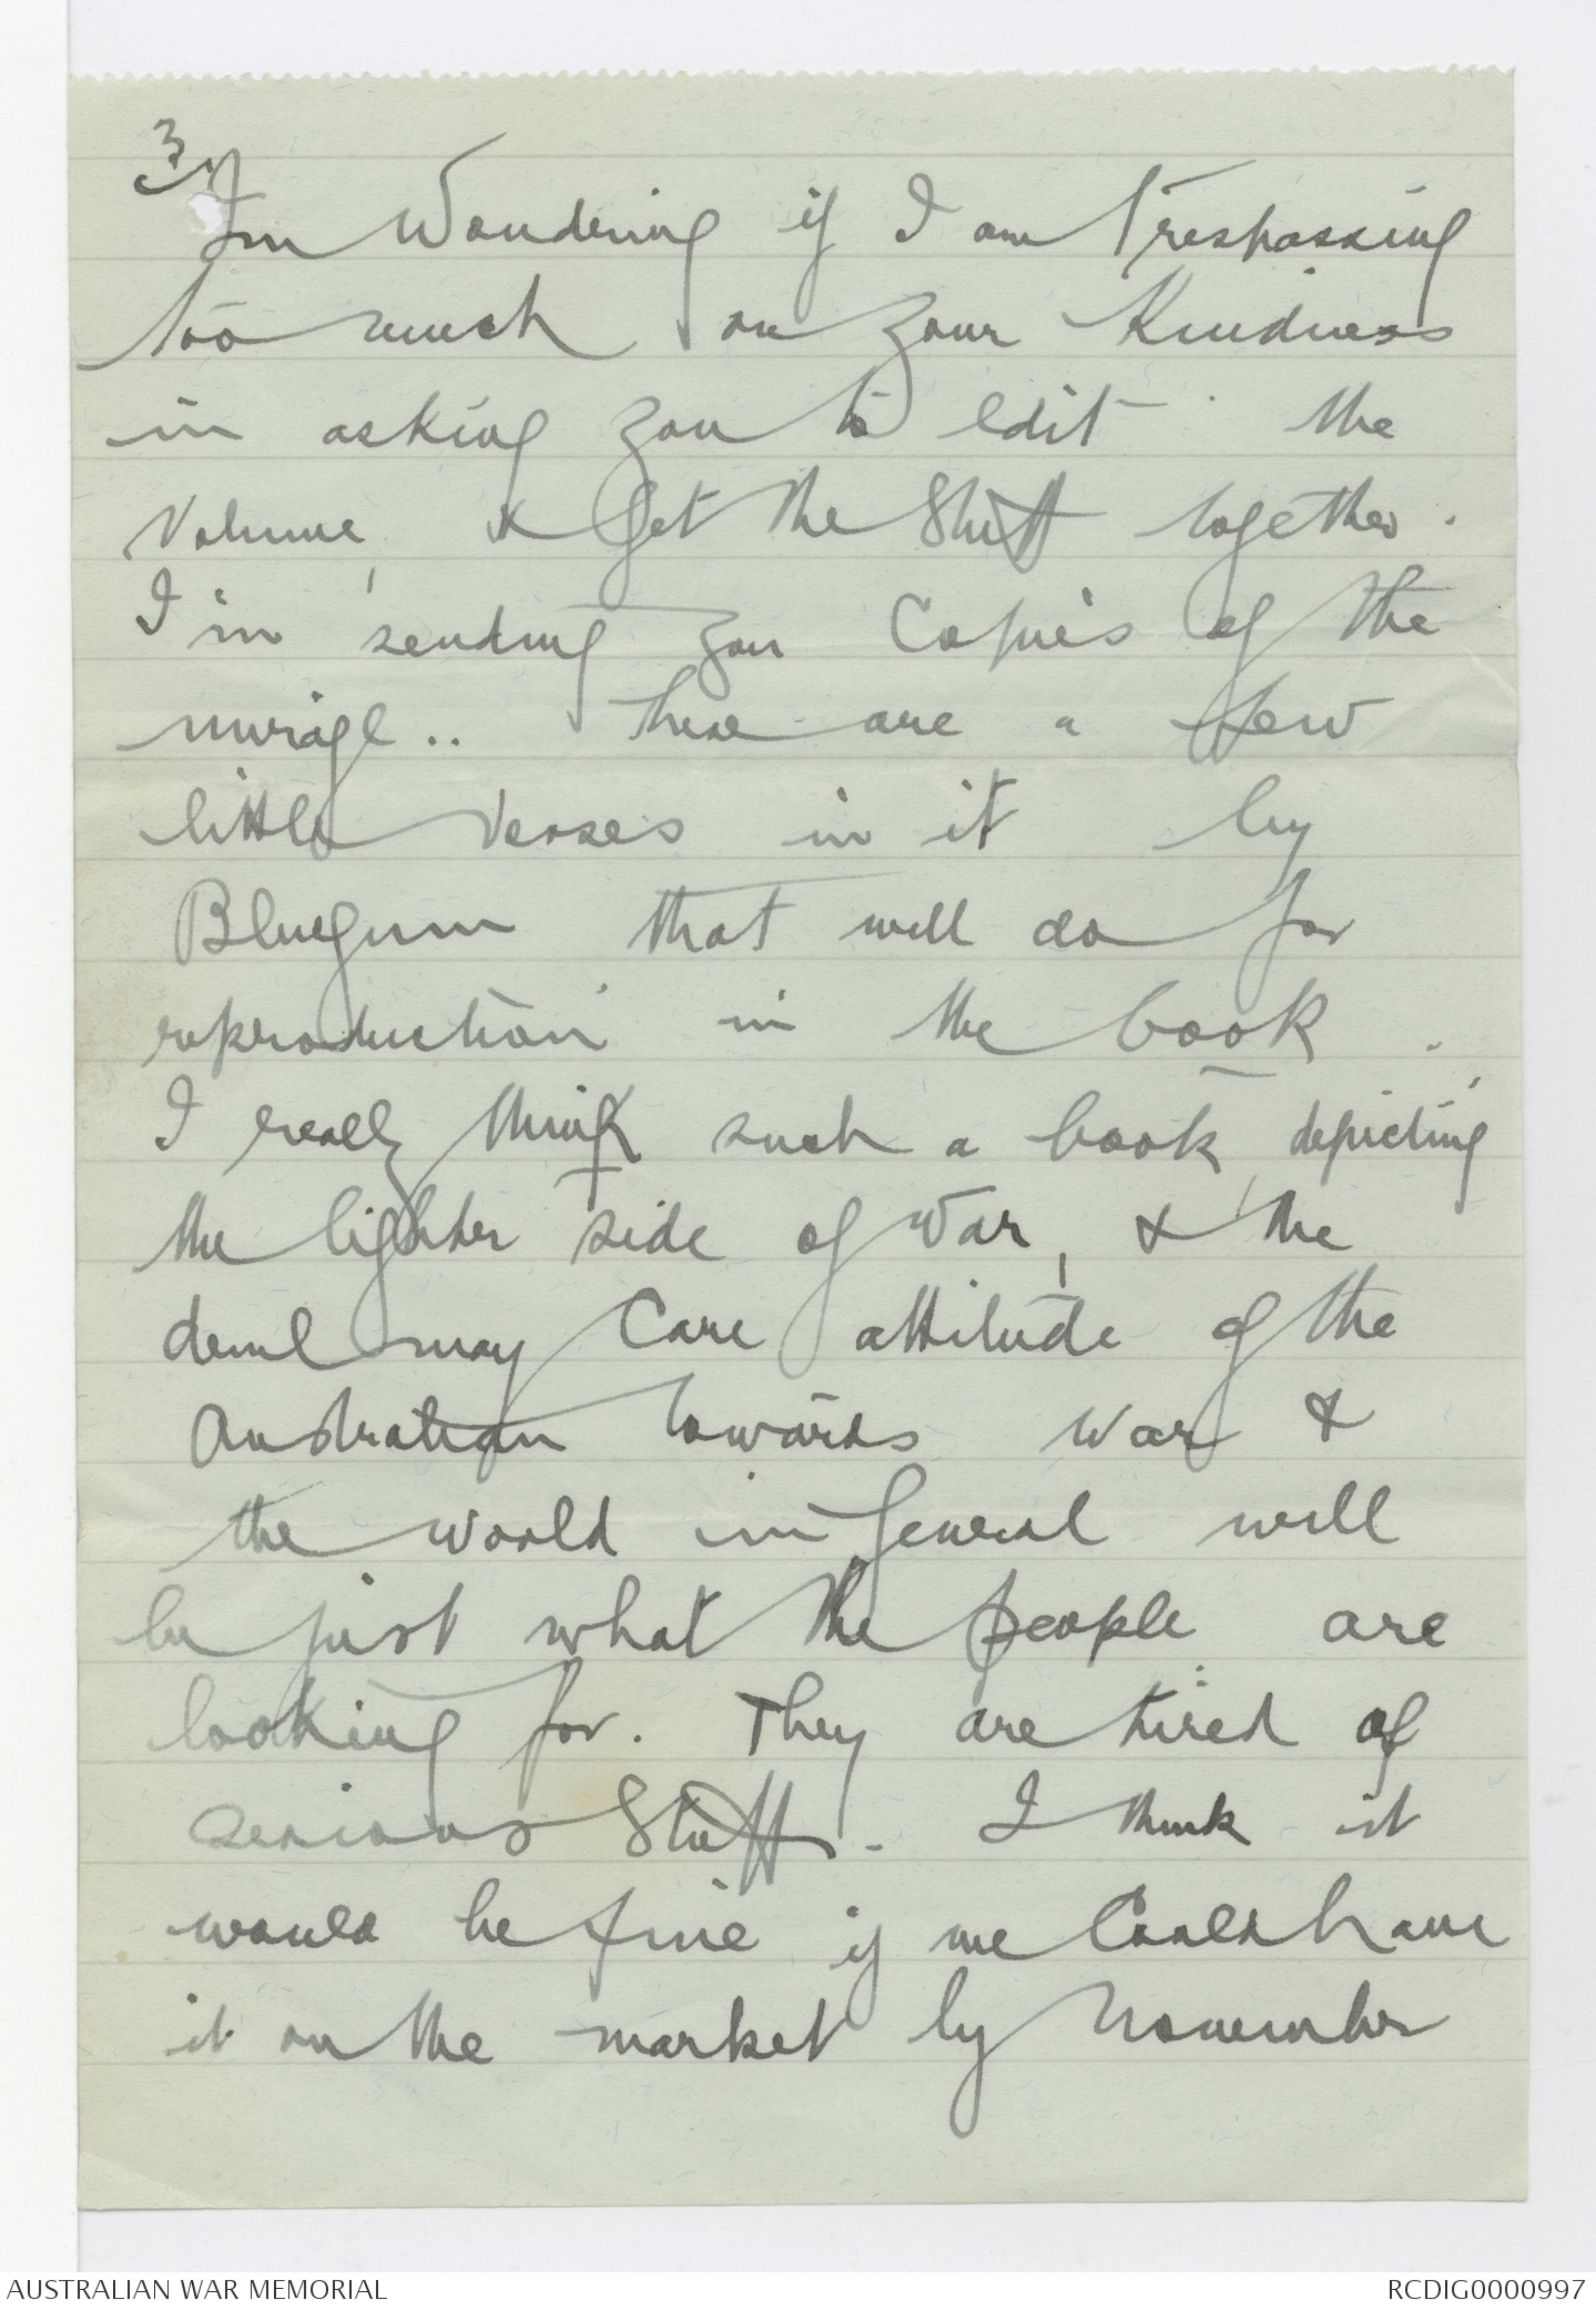 3/
I'm Wondering if I am Trespassing
too much on your Kindness
in asking you to edit the
Volume, & get the Stuff together.
I'm sending you Copies of the
mirage.. There are a few
little Verses in it by
Bluegum that will do for
reproduction in the book.
I really think such a book, depicting
the lighter side of War, & the
devil may Care attitude of the
Australian towards War &
the world in General will
be just what the people are
looking for. They are tired of
serious Stuff. I think it
would be fine if we Could have
it on the market by November
AUSTRALIAN WAR MEMORIAL
RCDIG0000997